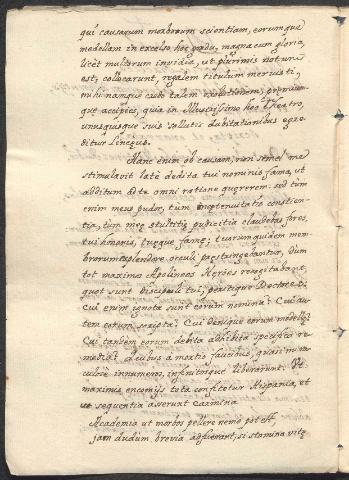 qui causarum morborum scientiam, eorumque
medellam in excelso hoc gradu, magna cum gloria,
licèt multorum invidia, ut plurimis notum
est, collocarunt, regalem titulum meruisti,
mihi namque cuso talem existimationem, premium-
que accipies, quia in Illustrissimo hoc Theatro,
unusquisque suis solutis dubitationibus egre-
ditur Linceus.
Hanc enim ob causam, non semel me
stimulavit latè dedita tui nominis fama, ut
additum ad te omni ratione quererem: sed tùm
enim meus pudor, tùm ineptenuitatis conscien-
tia, tùm meę stultitię pudicitia claudebat fores,
tui honoris, tuęque famę; tuorum quidem mem-
brorum splendore oculi perstringebantur, dùm
tot maximo Apolineos Heróes recogitabant,
quot sunt Discipuli tui, peritique Doctores.
Cui enim ignota sunt eorum nomina? Cui au-
tem eorum scripta? Cui denique eorum medellę?
Cui tandem eorum debita adhibita specifica re-
media? quibus à mortis faucibus, quasi mira-
culosè innumeros, infirmosque liberarunt. Ut
maximis encomijs tota confitetur Hispania, et
ut sequentia asserunt Carmina
Academia ut morbos pellere nemo potest,
jam dudum brevia adfuerant, si stamina vitę